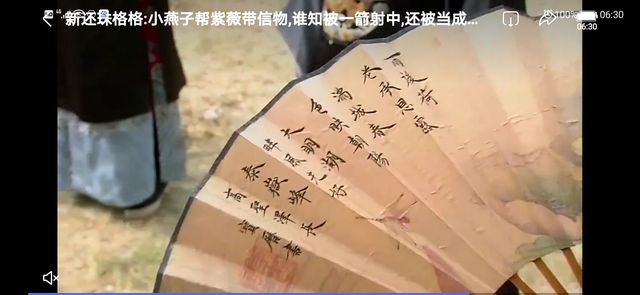 新还珠格格:小燕子帮紫薇带信物,谁知被一箭射中,还被当成...
100%
06:30
06:30
雨後荷
花承恩露
滿城春
色映朝陽
大明湖
泰嶽峰
高聖澤長
寶曆書